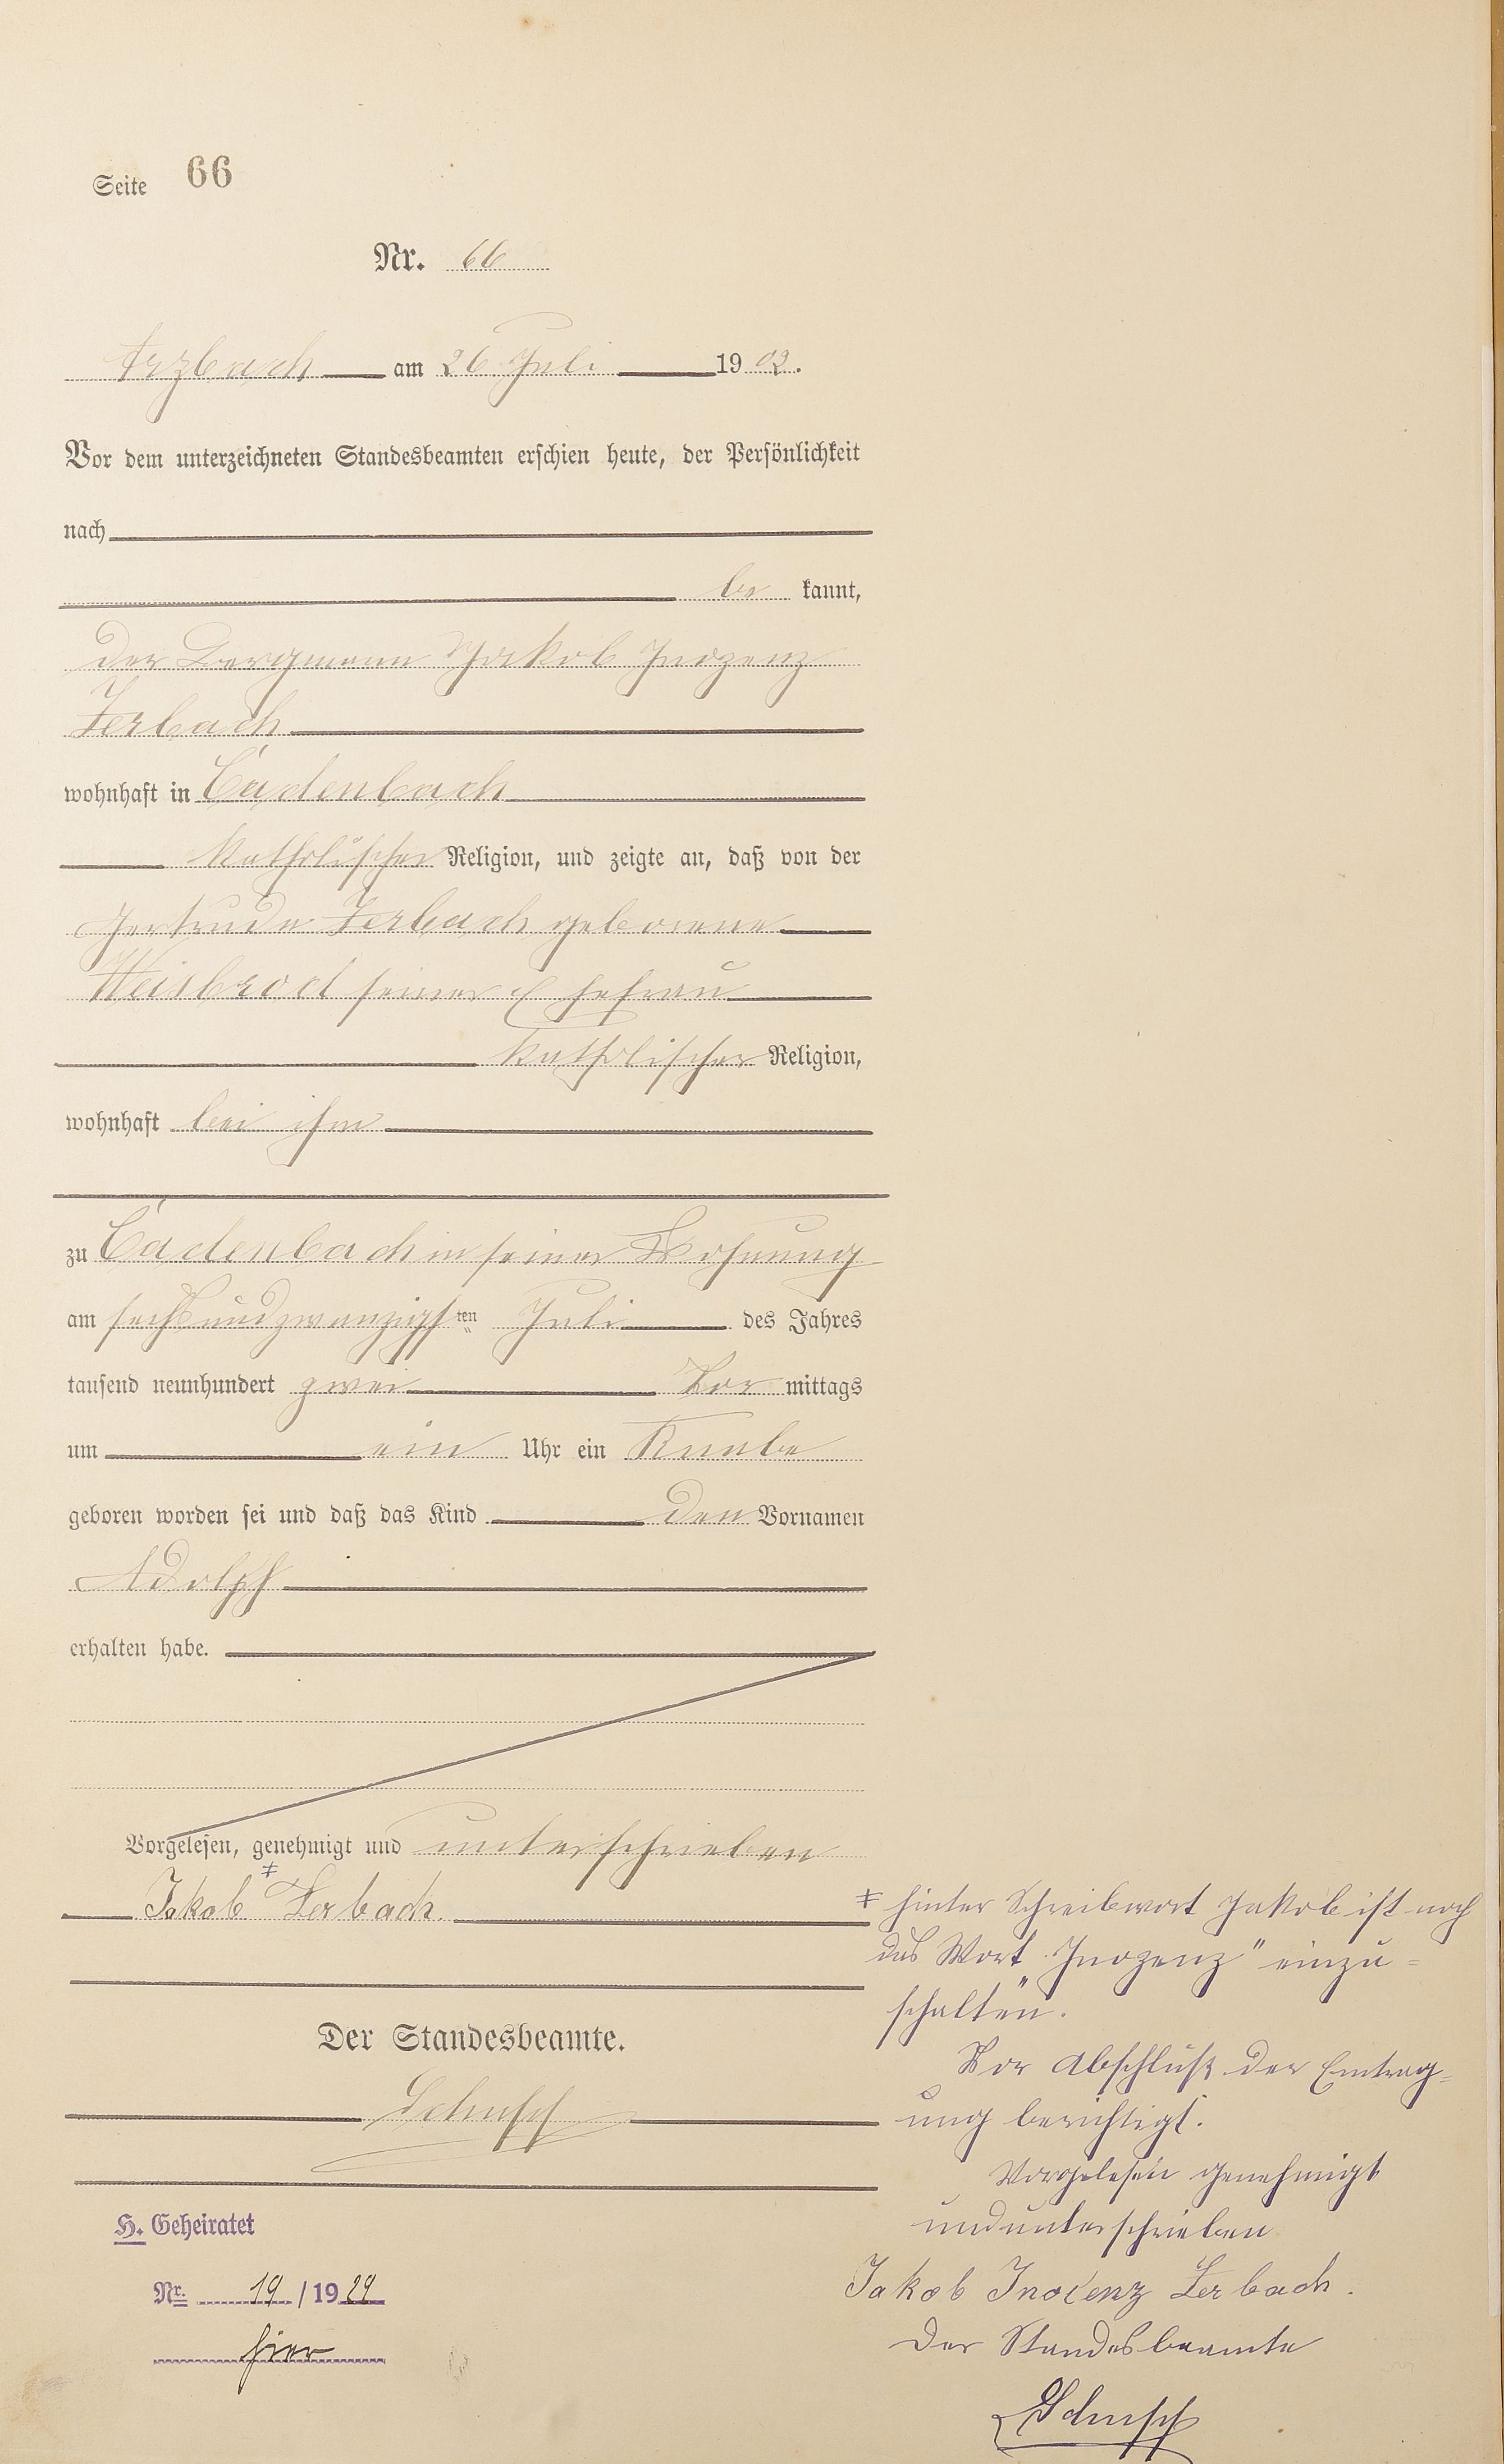 Seite 66
Nr. 66
Arzbach am 26 Juli 1902.
Vor dem unterzeichneten Standesbeamten erschien heute, der Persönlichkeit
nach
be kannt,
der Bergmann Jakob Inozenz
Zerbach
wohnhaft in Cadenbach
katholischer Religion, und zeigte an, daß von der
Gertrude Zerbach geborene
Weisbrod seiner Ehefrau
katholischer Religion,
wohnhaft bei ihm
zu Cadenbach in seiner Wohnung
am sechsundzwanzigsten Juli des Jahres
tausend neunhundert zwei Vor mittags
um ein Uhr ein Knabe
geboren worden sei und daß das Kind den Vornamen
Adolph
erhalten habe.
Vorgelesen, genehmigt und unterschrieben
Jakob ‡ Zerbach
Der Standesbeamte.
H. Geheiratet
Nr. 19 / 1929
hier
‡ hinter Schreibwort Jakob ist noch
das Wort „Inozenz" einzu=
schalten.
Vor Abschluß der Eintrag=
ung berichtigt.
Vorgelesen genehmigt
und unterschrieben
Jakob Inocenz Zerbach.
Der Standesbeamte